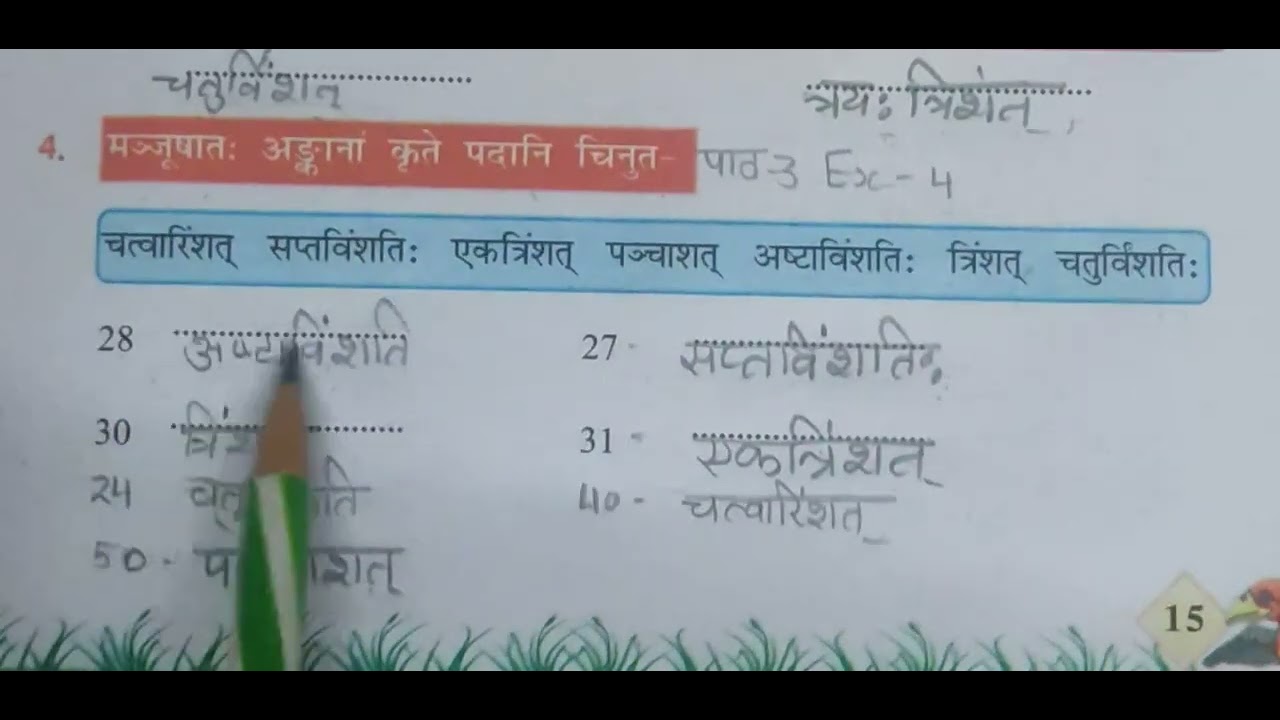 चतुर्विंशत् त्रयः त्रिंशत्
4. मञ्जूषातः अङ्कानां कृते पदानि चिनुत- पाठ-3 Ex-4
चत्वारिंशत् सप्तविंशतिः एकत्रिंशत् पञ्चाशत् अष्टाविंशतिः त्रिंशत् चतुर्विंशतिः
28 अष्टाविंशति 27 - सप्तविंशतिः
30 31 - एकत्रिंशत्
24 40 - चत्वारिंशत्
50 -
15